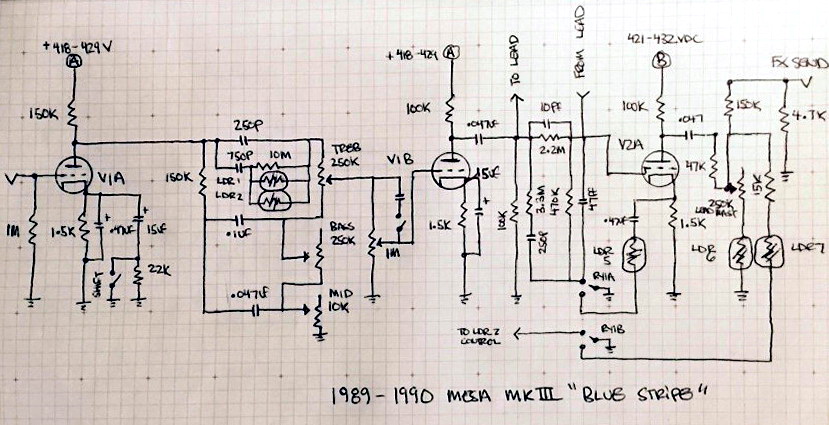 +418-429V
A
150K
V1A
1M
1.5K
.47UF
15UF
SHIFT
22K
250P
750P
10M
LDR1
LDR2
150K
.1UF
.047UF
TREB
250K
BASS
250K
MID
10K
V1B
1M
+418-429
A
100K
.047UF
15UF
1.5K
TO LEAD
FROM LEAD
10PF
2.2M
100K
3.3M
470K
250P
47PF
421-432VDC
B
100K
V2A
.047
.47UF
1.5K
LDR
5
RY1A
RY1B
TO LDR2
CONTROL
FX SEND
150K
4.7K
47K
250K
15K
LDR
6
LDR7
1989-1990 MESA MKIII "BLUE STRIPE"